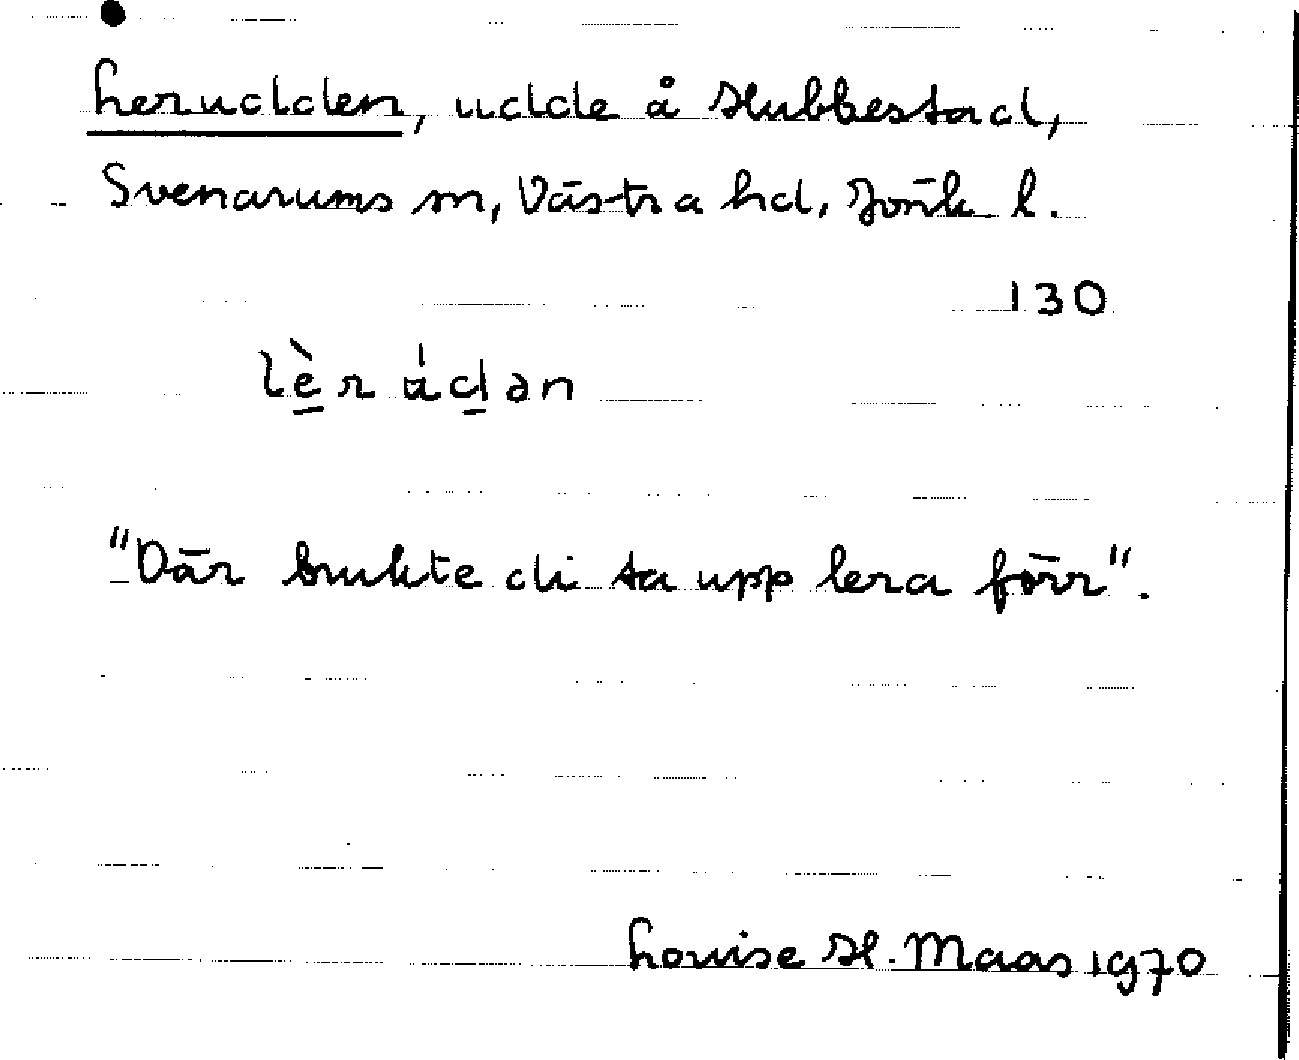 Lerudden, udde å Hubbestad,
Svenarums sn, Västra hd, Jönk l.
130
lèr ùdən
"Där brukte di ta upp lera förr".
Louise H. Maas 1970